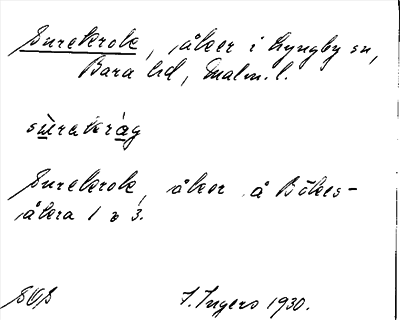 Surekrok, åker i Lyngby sn,
Bara hd, Malm. l.
sùrakràg
Surekrok, åker å Bökes-
åkra 1 o 3.
SOS I. Ingers 1930.